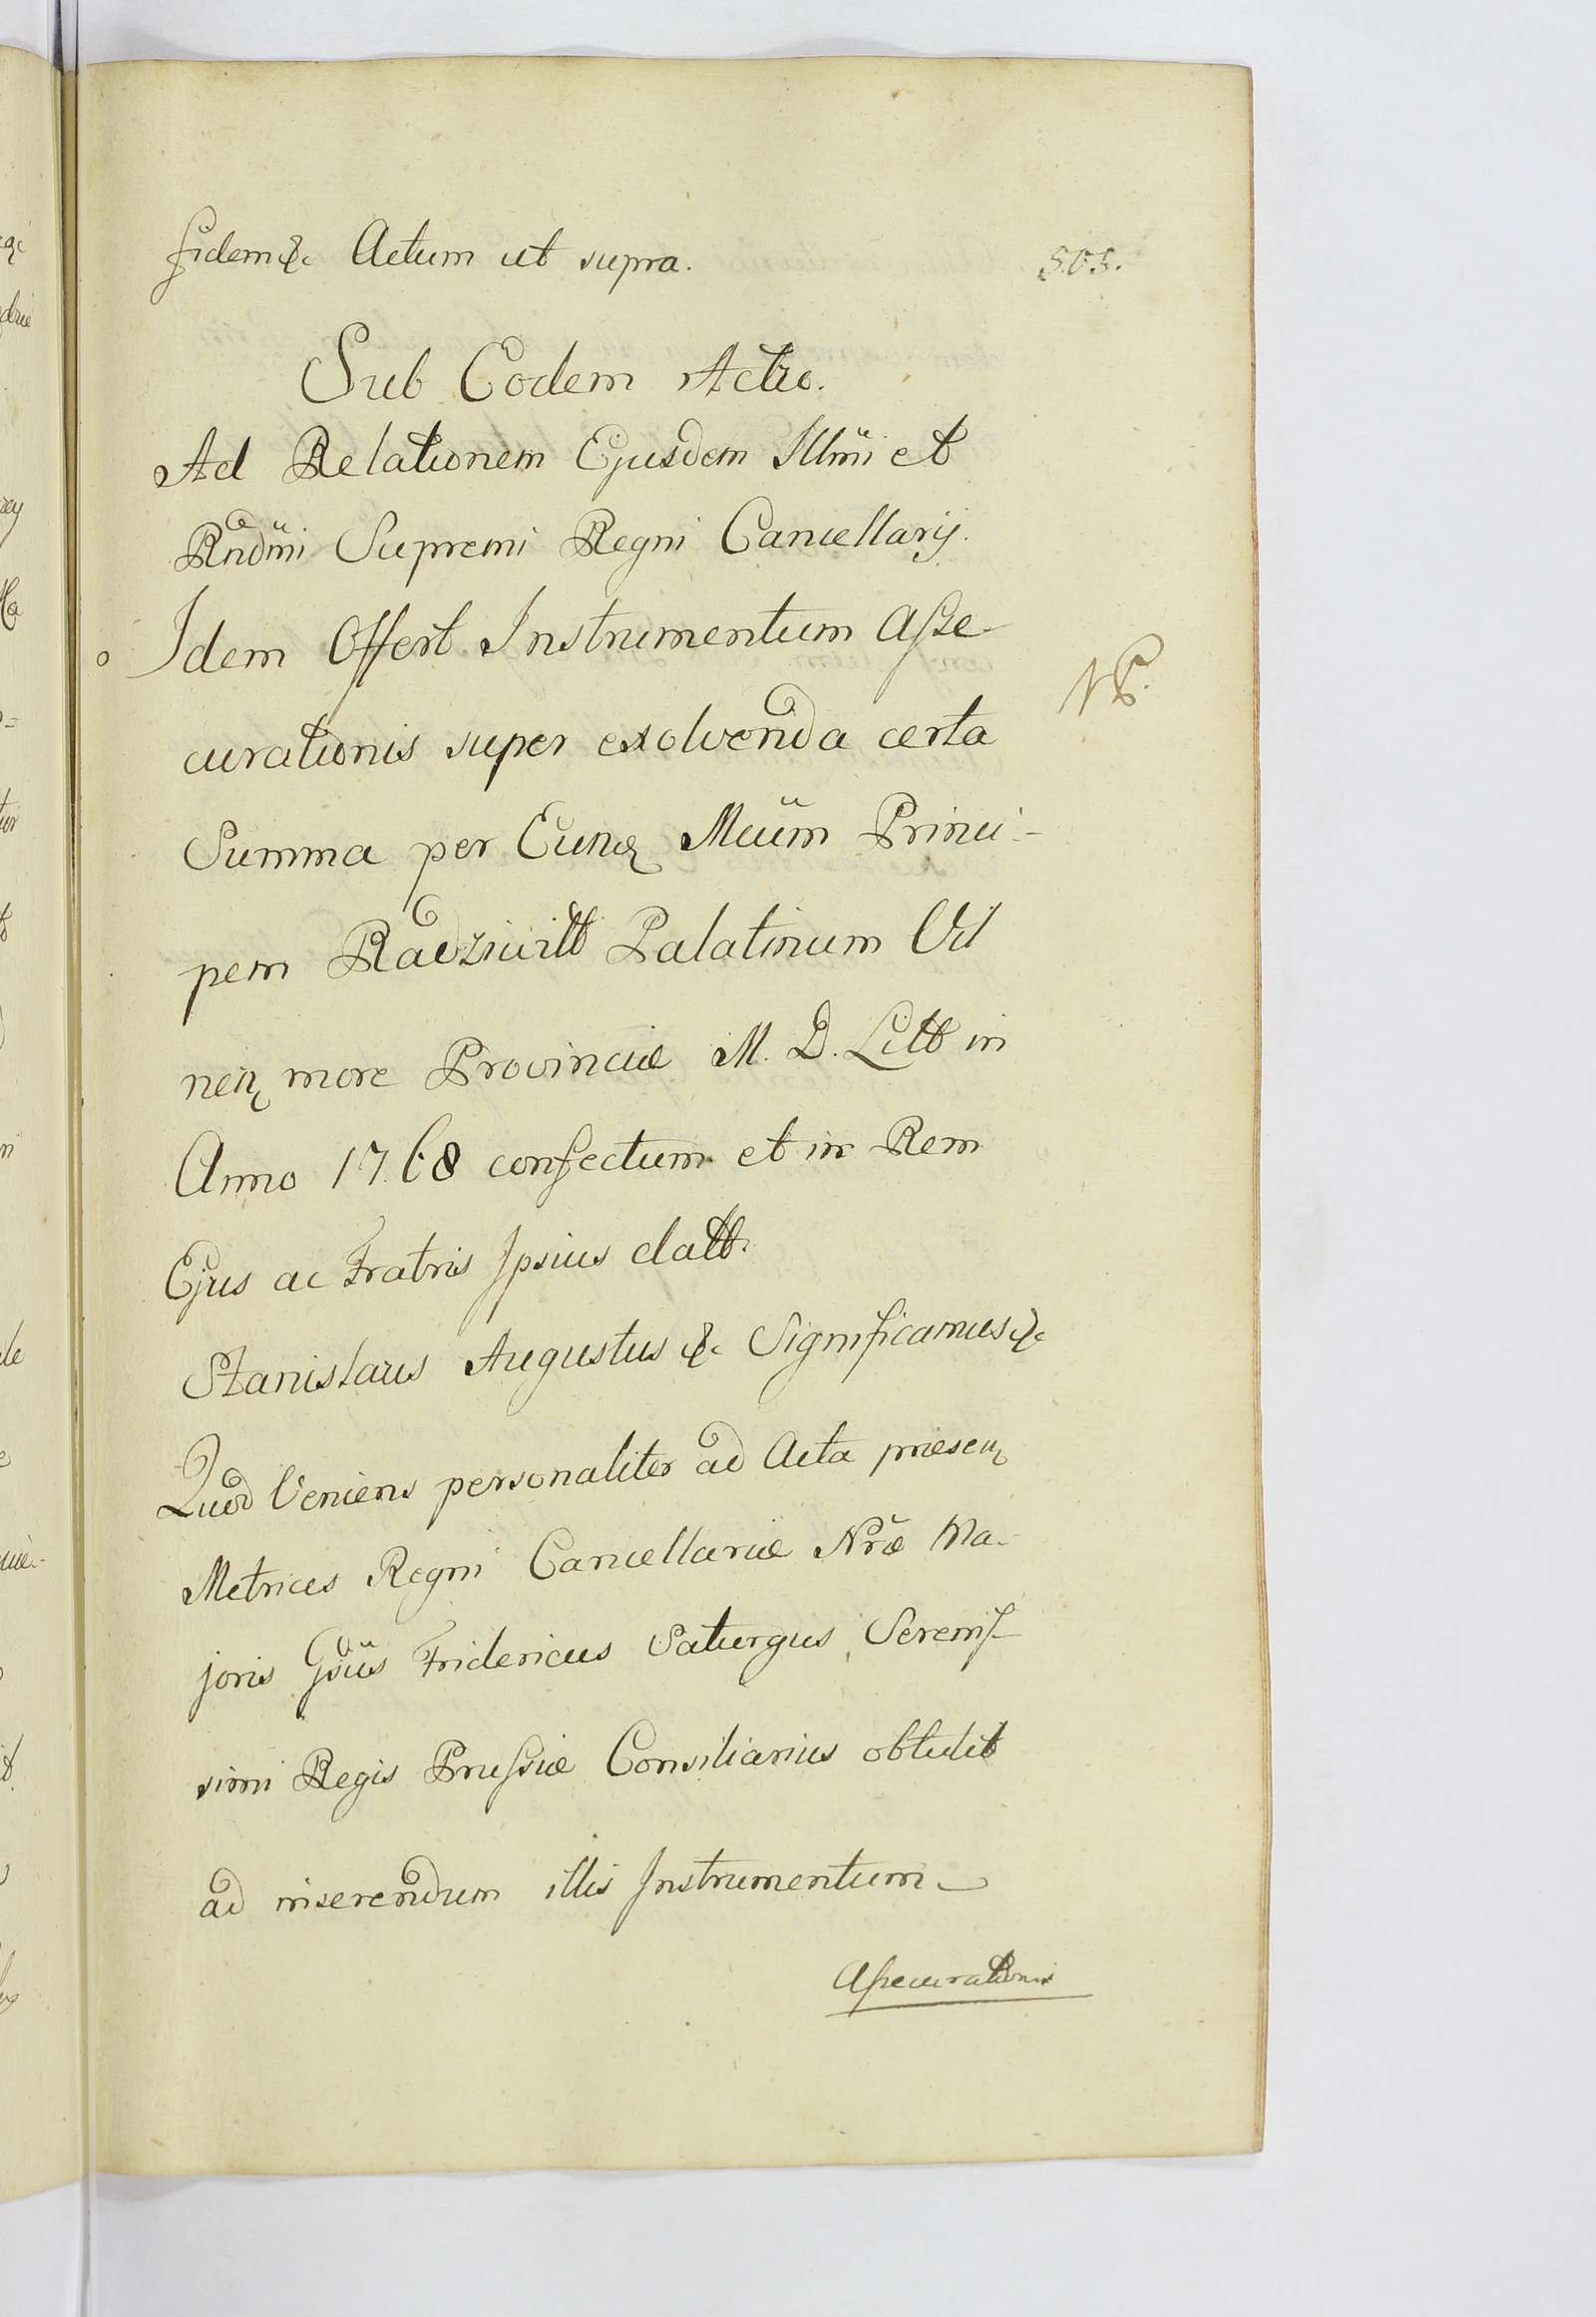 fidem &c Actum ut supra.
505.
Sub Eodem Actu.
Ad Relationem Ejusdem Illmi et
Rndmi Supremi Regni Cancellarij.
Idem Offert Instrumentum Asse-
curationis super exolvenda certa
NB.
Summa per Eunđ Mcum Princi-
pem Radziwill Palatinum Vil
nen more Provinciæ M. D. Litt in
Anno 1768 confectum et in Rem
Ejus ac Fratris Ipsius datt.
Stanislaus Augustus &c Significamus &c
Quod Veniens personaliter ad Acta præsen
Metrices Regni Cancellariæ Nræ Ma-
joris Gsus Fridericus Saturgus, Serenis-
simi Regis Prussiæ Consiliarius obtulit
ad inserendum illis Instrumentum
Assecurationis